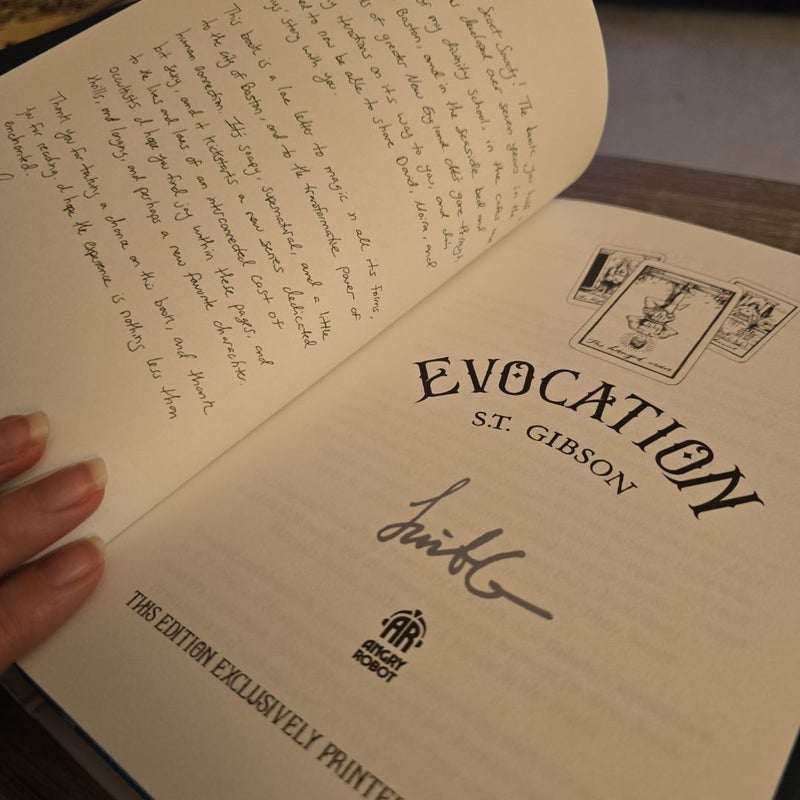 Society! The book you
developed over seven years in the
of my divinity school, in the
Boston, and in the seaside bed and
of greater New England. It's gone through
iterations on its way to you, and I'm
to now be able to share David, Moira, and
story with you.
This book is a love letter to magic in all its forms,
to the city of Boston, and to the transformative power of
human connection. It's soapy, supernatural, and a little
bit sexy, and it kickstarts a new series dedicated
to the lives and loves of an interconnected cast of
occultists. I hope you find joy within these pages, and
thrills, and longing, and perhaps a new favorite character.
Thank you for taking a chance on this book, and thank
you for reading. I hope the experience is nothing less than
enchanted.
The hanged man
EVOCATION
S.T. GIBSON
AR
ANGRY
ROBOT
THIS EDITION EXCLUSIVELY PRINTE